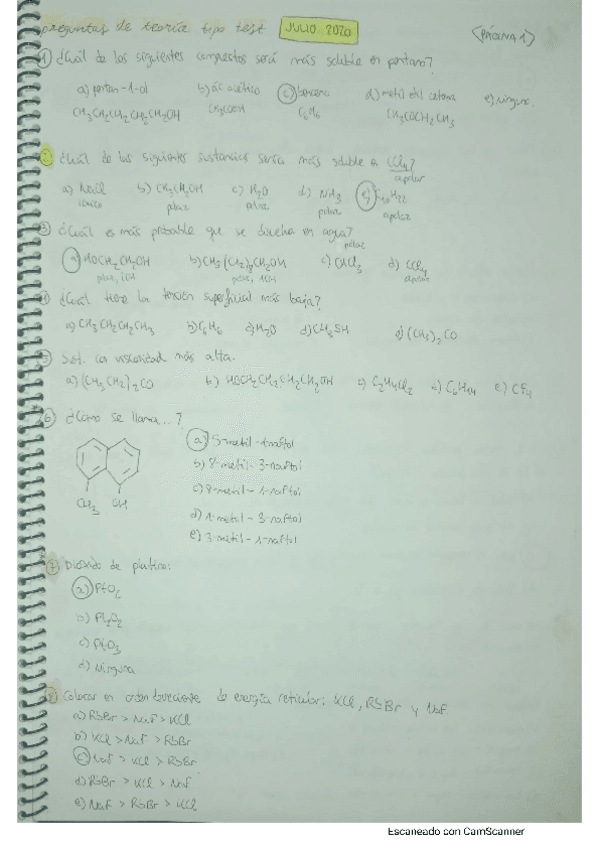 preguntas de teoría tipo test JULIO 2020 <PÁGINA 1>
1) ¿Cuál de los siguientes compuestos será más soluble en pentano?
a) pentan-1-ol b) ác acético c) benceno d) metil etil cetona e) ninguno.
CH3CH2CH2CH2CH2OH CH3COOH C6H6 CH3COCH2CH3
2) ¿Cuál de las siguientes sustancias sería más soluble en CCl4?
apolar
a) NaCl b) CH3CH2OH c) H2O d) NH3 e) C10H22
iónico polar polar polar apolar
3) ¿Cuál es más probable que se disuelva en agua?
polar
a) HOCH2CH2OH c) CHCl3 d) CCl4
apolar
4) ¿Cuál tiene la tensión superficial más baja?
a) CH3CH2CH2CH3 b) C6H6 c) H2O d) CH3SH e) (CH3)2CO
5) Sust. con viscosidad más alta.
a) (CH3CH2)2CO b) HOCH2CH2CH2CH2OH c) C2H4Cl2 d) C6H14 e) CF4
6) ¿Cómo se llama...?
a) 5-metil-1-naftol
b) 7-metil-3-naftol
c) 8-metil-1-naftol
d) 1-metil-3-naftol
e) 3-metil-1-naftol
CH3 OH
7) Dióxido de platino:
a) PtO2
b) Pt2O2
c) PtO3
d) Ninguna
8) Colocar en orden de energía reticular: KCl, RbBr y NaF
a) RbBr > NaF > KCl
b) KCl > NaF > RbBr
c) NaF > KCl > RbBr
d) RbBr > KCl > NaF
e) NaF > RbBr > KCl
Escaneado con CamScanner